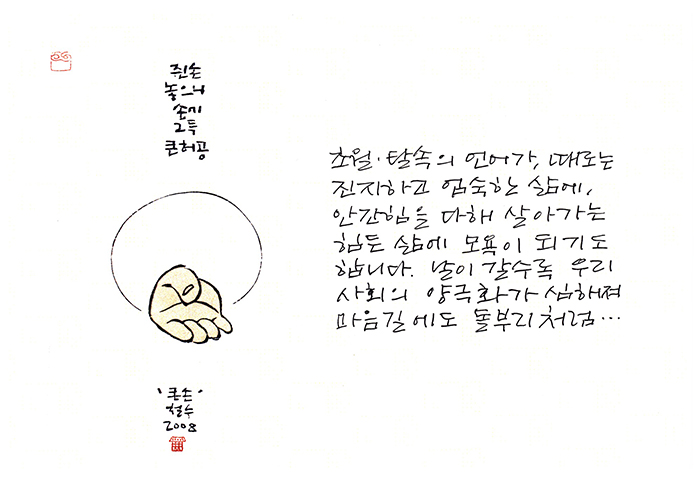 쥔손
놓으니
손끼
그득
큰허공
'큰손'
철수
2008
초월·탈속의 언어가, 때로는
진지하고 엄숙한 삶에,
안간힘을 다해 살아가는
힘든 삶에 모욕이 되기도
합니다. 날이 갈수록 우리
사회의 양극화가 심해져
마음길에도 돌부리처럼…